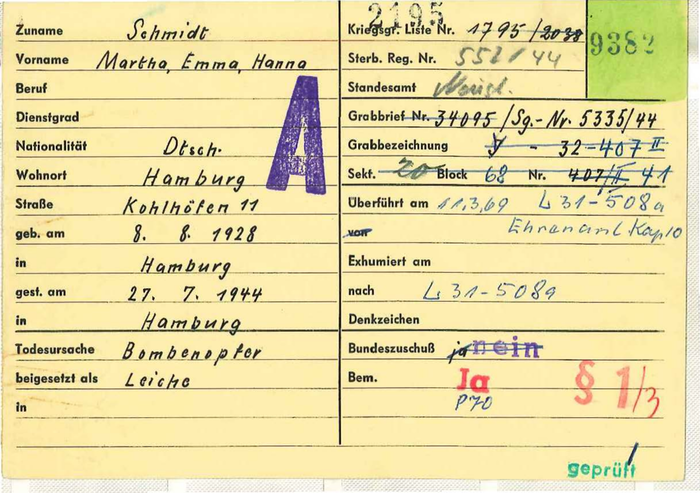 2195
Zuname Schmidt
Vorname Martha, Emma, Hanna
Beruf
Dienstgrad
Nationalität Dtsch.
Wohnort Hamburg
Straße Kohlhöfen 11
geb. am 8. 8. 1928
in Hamburg
gest. am 27. 7. 1944
in Hamburg
Todesursache Bombenopfer
beigesetzt als Leiche
in
A
Kriegsgr. Liste Nr. 1795 /2038
9382
Sterb. Reg. Nr. 552/44
Standesamt
Grabbrief Nr. 34095 / Sg.-Nr. 5335/44
Grabbezeichnung - 32-407 II
Sekt. 20 Block 68 Nr. 407/II 41
Überführt am 11.3.69 L31-508a
von
Exhumiert am
nach L31-508a
Denkzeichen
Bundeszuschuß ja nein
Bem. Ja § 1/3
P70
geprüft